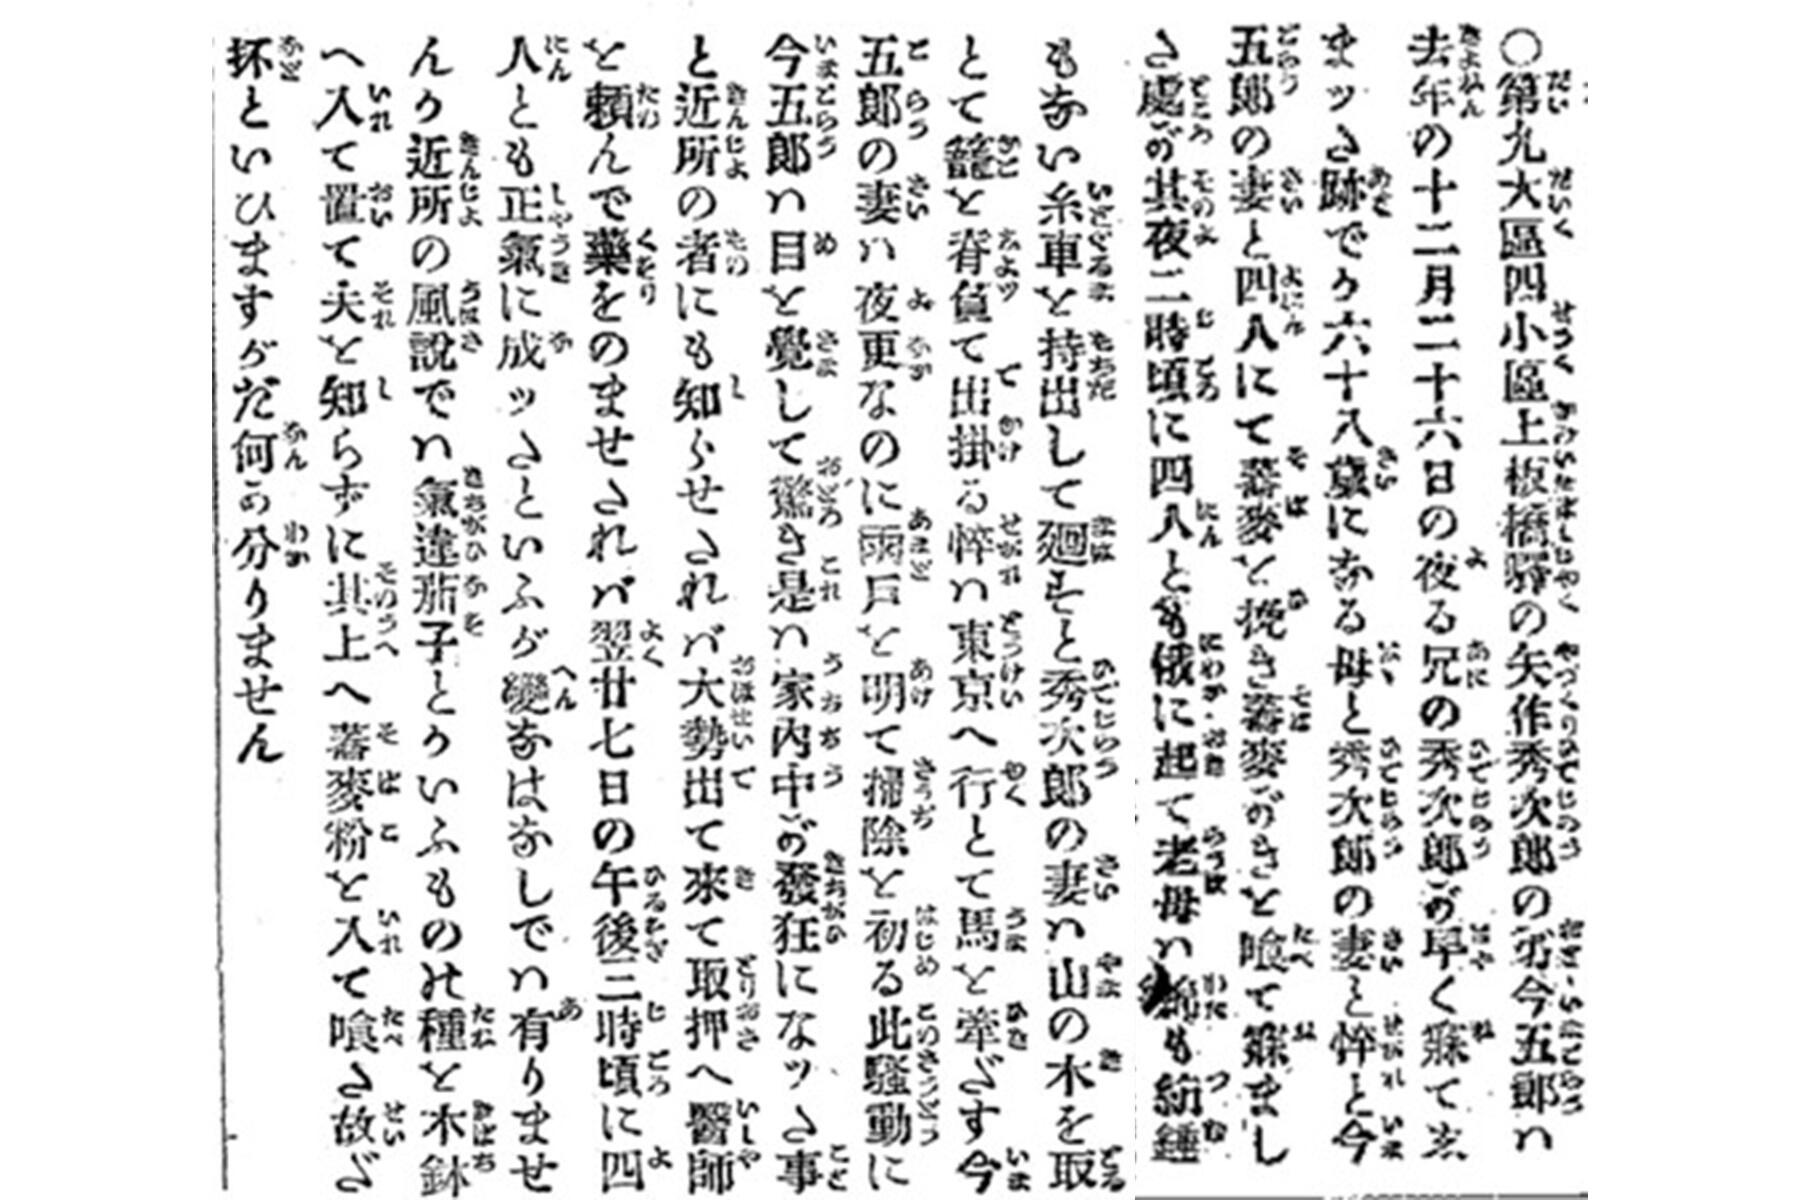 〇第九大區四小區上板橋驛の矢作秀次郎の弟今五郎ハ
去年の十二月二十六日の夜る兄の秀次郎が早く寐てゑ
まッた跡でか六十八歳になる母と秀次郎の妻と悴と今
五郎の妻と四人にて蕎麥を挽き蕎麥がきを喰て寐まし
た處が其夜二時頃に四人とも俄に起て老母ハ綿も紡錘
もない糸車を持出して廻すと秀次郎の妻ハ山の木を取
とて籠を脊負て出掛る悴ハ東京へ行とて馬を牽だす今
五郎の妻ハ夜更なのに雨戸を明て掃除を初る此騒動に
今五郎ハ目を覺して驚き是ハ家内中が發狂になッた事
と近所の者にも知らせたれバ大勢出て來て取押へ醫師
を頼んで藥をのませたれバ翌廿七日の午後三時頃に四
人とも正氣に成ッたといふが變なはなしでハ有りませ
んか近所の風説でハ氣違茄子とかいふものの種を木鉢
へ入て置て夫を知らずに其上へ蕎麥粉を入て喰た故だ
抔といひますがだ何か分りません